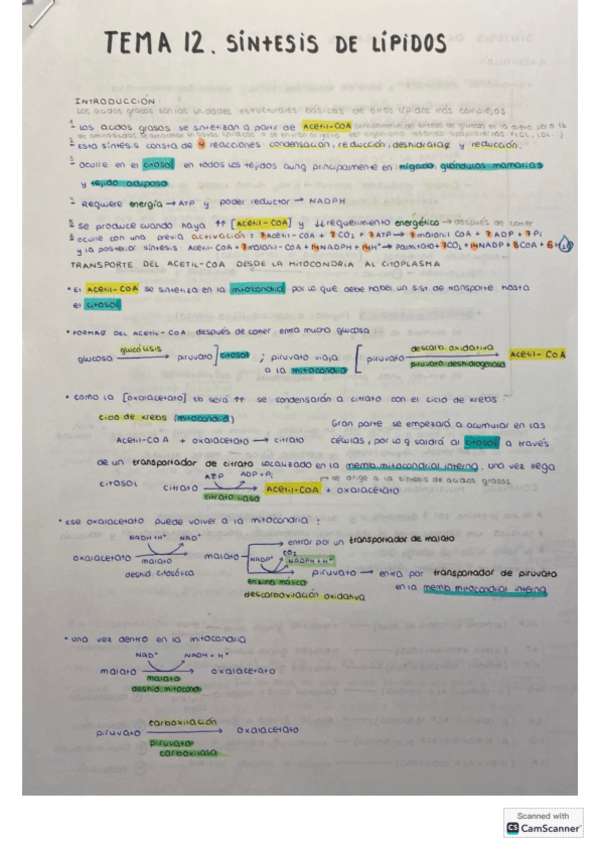 TEMA 12. SÍNTESIS DE LÍPIDOS
INTRODUCCIÓN
Los ácidos grasos son las unidades estructurales básicas de otros lípidos más complejos
Los ácidos grasos se sintetizan a partir de Acetil-CoA
Esta síntesis consta de 4 reacciones condensación, reducción, deshidratac y reducción.
Ocurre en el citosol en todos los tejidos aunq principalmente en hígado, glándulas mamarias
y tejido adiposo
Requiere energía → ATP y poder reductor → NADPH
se produce cuando haya ↑↑ [Acetil-CoA] y ↓↓ requerimiento energético → después de comer
ocurre con una previa activación : 7 Acetil-CoA + 7 CO2 + 7 ATP → 7 malonil CoA + 7 ADP + 7 Pi
y la posterior síntesis Acetil-CoA + 7 malonil-CoA + 14 NADPH + 14 H+ → Palmitato + 7 CO2 + 14 NADP + 8 CoA + 6 H2O
TRANSPORTE DEL ACETIL-COA DESDE LA MITOCONDRIA AL CITOPLASMA
• El Acetil-CoA se sintetiza en la mitocondria por lo que debe haber un sist de transporte hasta
el citosol
• FORMAC DEL ACETIL-COA: después de comer, entra mucha glucosa
glucólisis descarb. oxidativa
glucosa → piruvato ] citosol ; piruvato viaja [ piruvato → Acetil-CoA
a la mitocondria piruvato deshidrogenasa
• como la [oxalacetato] tb será ↑↑ se condensarán a citrato con el ciclo de krebs
ciclo de krebs (mitocondria) Gran parte se empezará a acumular en las
Acetil-CoA + oxalacetato → citrato células, por lo q saldrá al citosol a través
de un transportador de citrato localizado en la memb. mitocondrial interna. una vez llega
citosol ATP ADP + Pi se dirige a la síntesis de ácidos grasos
citrato → Acetil-CoA + oxalacetato
citrato liasa
• ese oxalacetato puede volver a la mitocondria :
NADH + H+ NAD+ entrar por un transportador de malato
oxalacetato → malato NADP+ CO2 NADPH + H+
malato piruvato → entra por transportador de piruvato
deshid. citosólica enzima málica en la memb mitocondrial interna
descarboxilación oxidativa
• una vez dentro en la mitocondria
NAD+ NADH + H+
malato → oxalacetato
malato
deshid mitocond
carboxilación
piruvato → oxalacetato
piruvato
carboxilasa
Scanned with
CS CamScanner